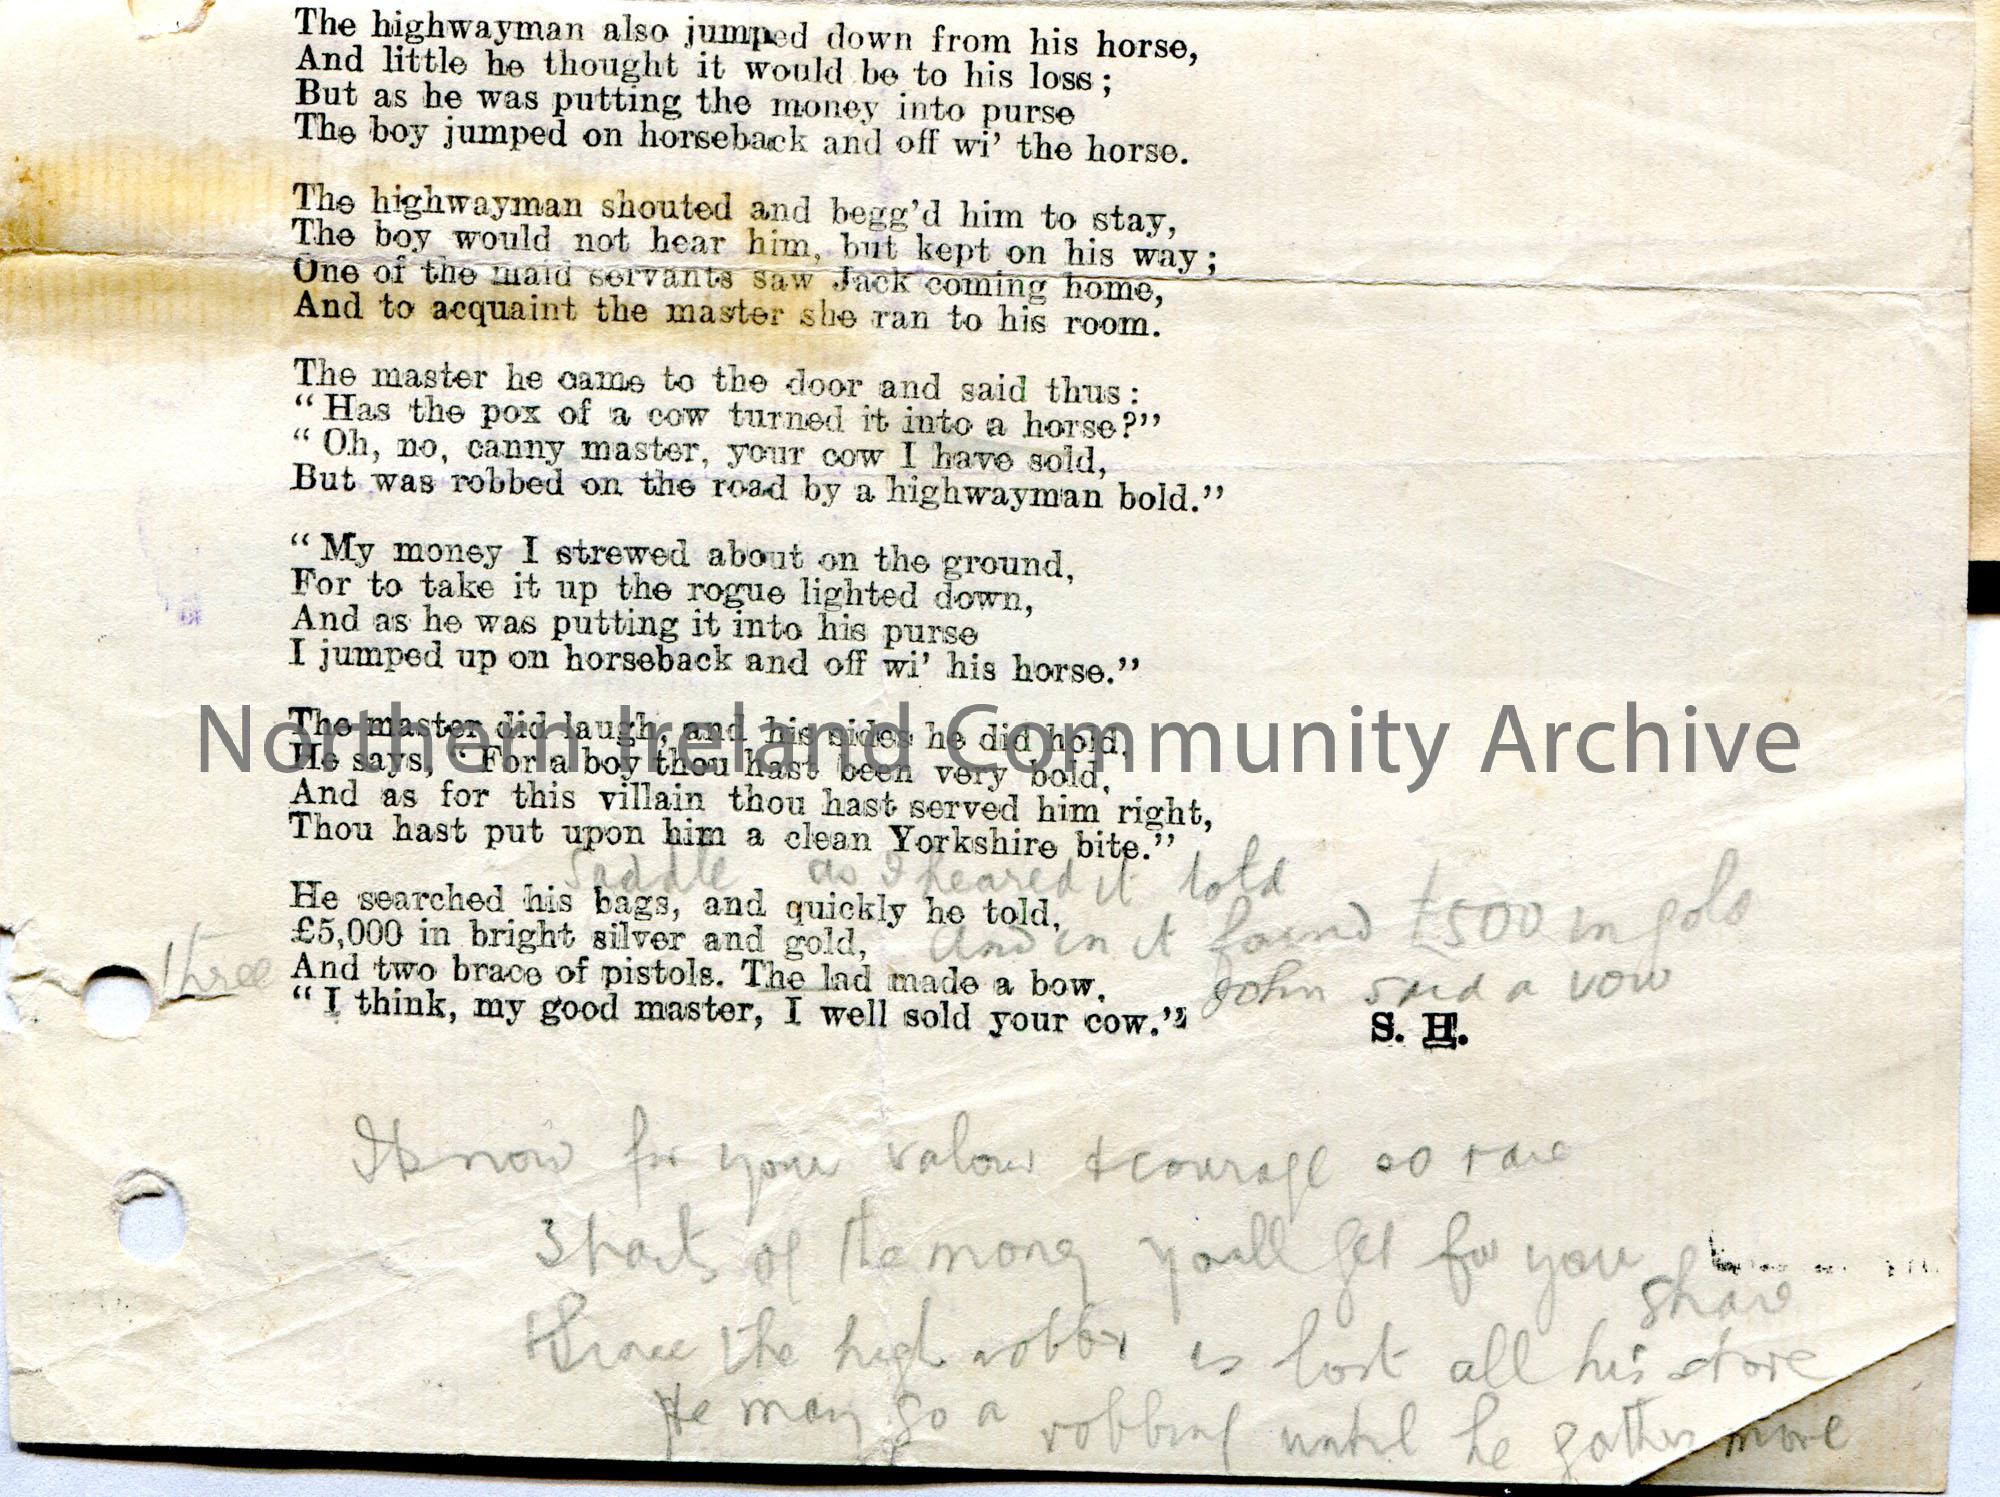 The highwayman also jumped down from his horse,
And little he thought it would be to his loss;
But as he was putting the money into purse
The boy jumped on horseback and off wi' the horse.
The highwayman shouted and begg'd him to stay,
The boy would not hear him, but kept on his way;
One of the maid servants saw Jack coming home,
And to acquaint the master she ran to his room.
The master he came to the door and said thus:
“Has the pox of a cow turned it into a horse?”
“Oh, no, canny master, your cow I have sold,
But was robbed on the road by a highwayman bold.”
“My money I strewed about on the ground,
For to take it up the rogue lighted down,
And as he was putting it into his purse
I jumped up on horseback and off wi' his horse.”
Northern Ireland Community Archive
The master did laugh, and his sides he did hold,
He says, “For a boy thou hast been very bold,
And as for this villain thou hast served him right,
Thou hast put upon him a clean Yorkshire bite.”
saddle as I heared it told
He searched his bags, and quickly he told,
£5,000 in bright silver and gold,
And in it found £500 in gold
three
And two brace of pistols. The lad made a bow,
John said a vow
“I think, my good master, I well sold your cow.”
S. H.
for your valour & courage so rare
3 parts of the money you'll get for your
share
Since the high robber is lost all his store
He may go a robbing until he gather more